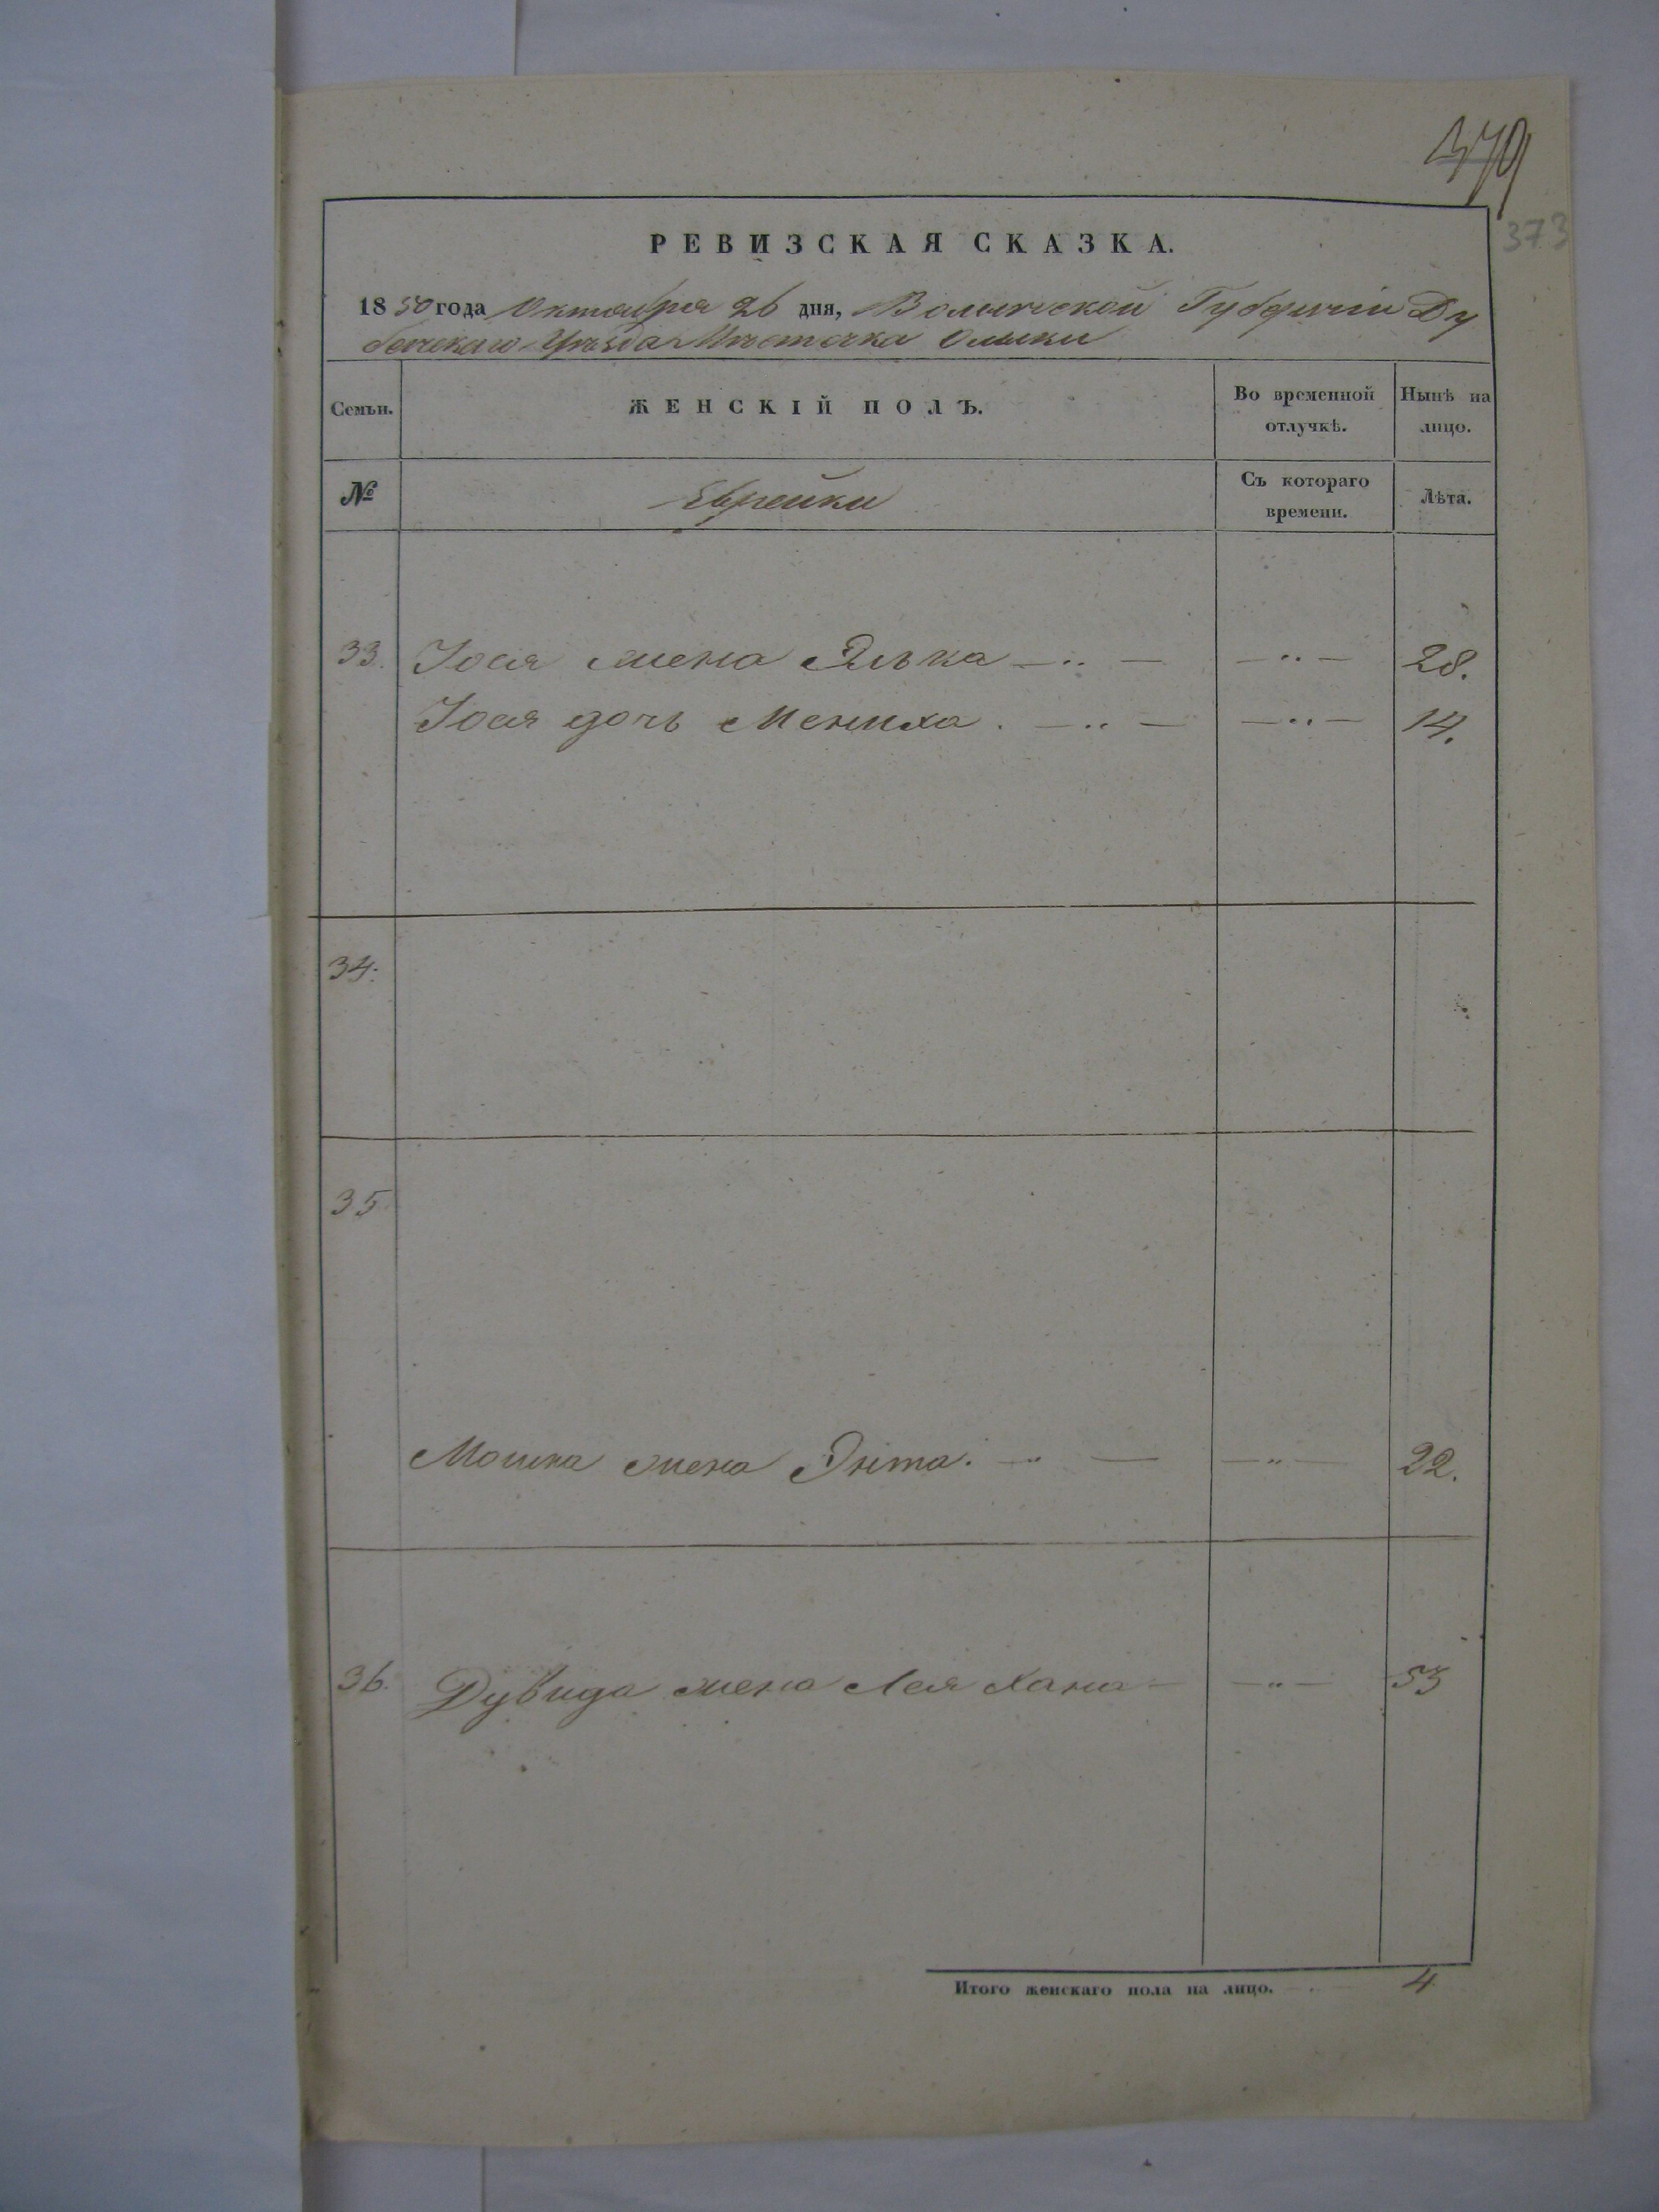 379
373
РЕВИЗСКАЯ СКАЗКА.
1850 года Октября 26 дня, Волынской Губерніи Ду
бенскаго Уѣзда Мѣстечка Олыки
Семьи. ЖЕНСКІЙ ПОЛЪ. Во временной отлучкѣ. Нынѣ на лицо.
№ Еврейки Съ котораго времени. Лѣта.
33. Іося жена Элька — „ — — „ — 28.
Іося дочь Мениха. — „ — — „ — 14.
34.
35
Мошка жена Энта. — „ — — „ — 22.
36. Дувида жена Лея Хана — — „ — 53
Итого женскаго пола на лицо. 4